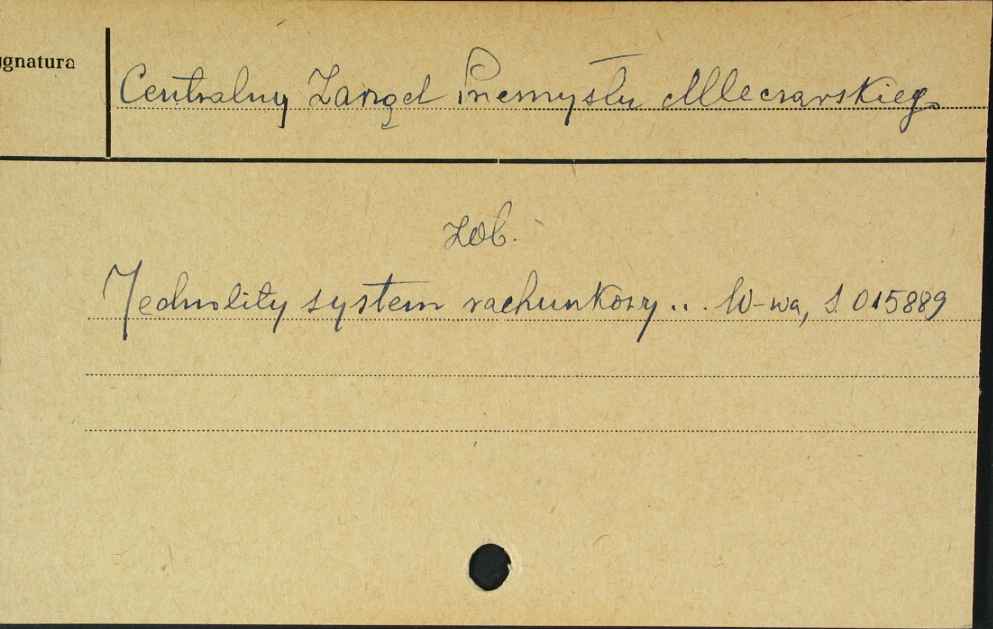 ygnatura
Centralny Zarząd Przemysłu Mleczarskiego
Zob.
Jednolity system rachunkowy... W-wa, S. 015889